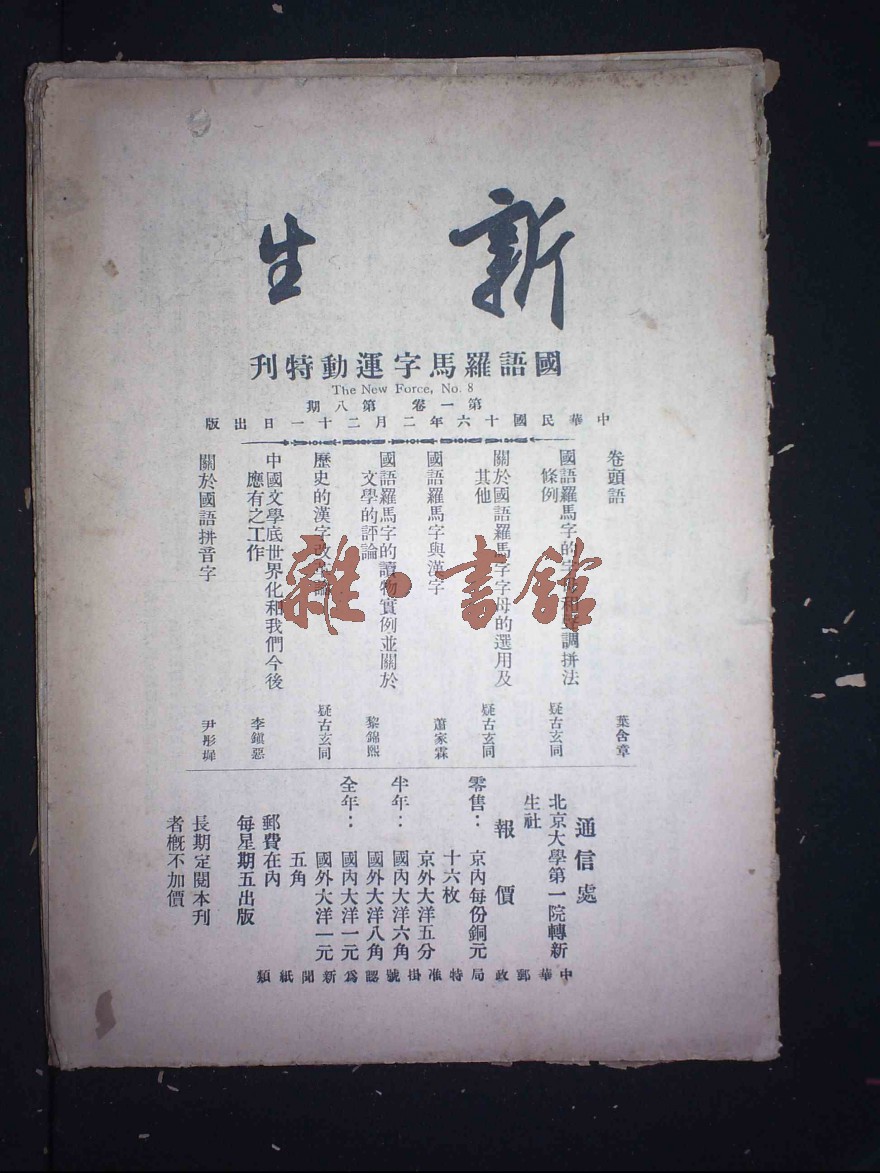 新生
國語羅馬字運動特刊
The New Force, No. 8
第一卷 第八期
中華民國十六年二月二十一日出版
卷頭語
葉含章
國語羅馬字的字母和聲調拼法
條例
疑古玄同
關於國語羅馬字字母的選用及
其他
疑古玄同
國語羅馬字與漢字
蕭家霖
國語羅馬字的讀物實例並關於
文學的評論
黎錦熙
歷史的漢字改革論
疑古玄同
中國文學底世界化和我們今後
應有之工作
李鎮惡
關於國語拼音字
尹彤墀
通信處
北京大學第一院轉新
生社
報價
零售：京內每份銅元
十六枚
京外大洋五分
半年：國內大洋六角
國外大洋八角
全年：國內大洋一元
國外大洋一元
五角
郵費在內
每星期五出版
長期定閱本刊
者概不加價
中華郵政局特准掛號認爲新聞紙類
雜·書館